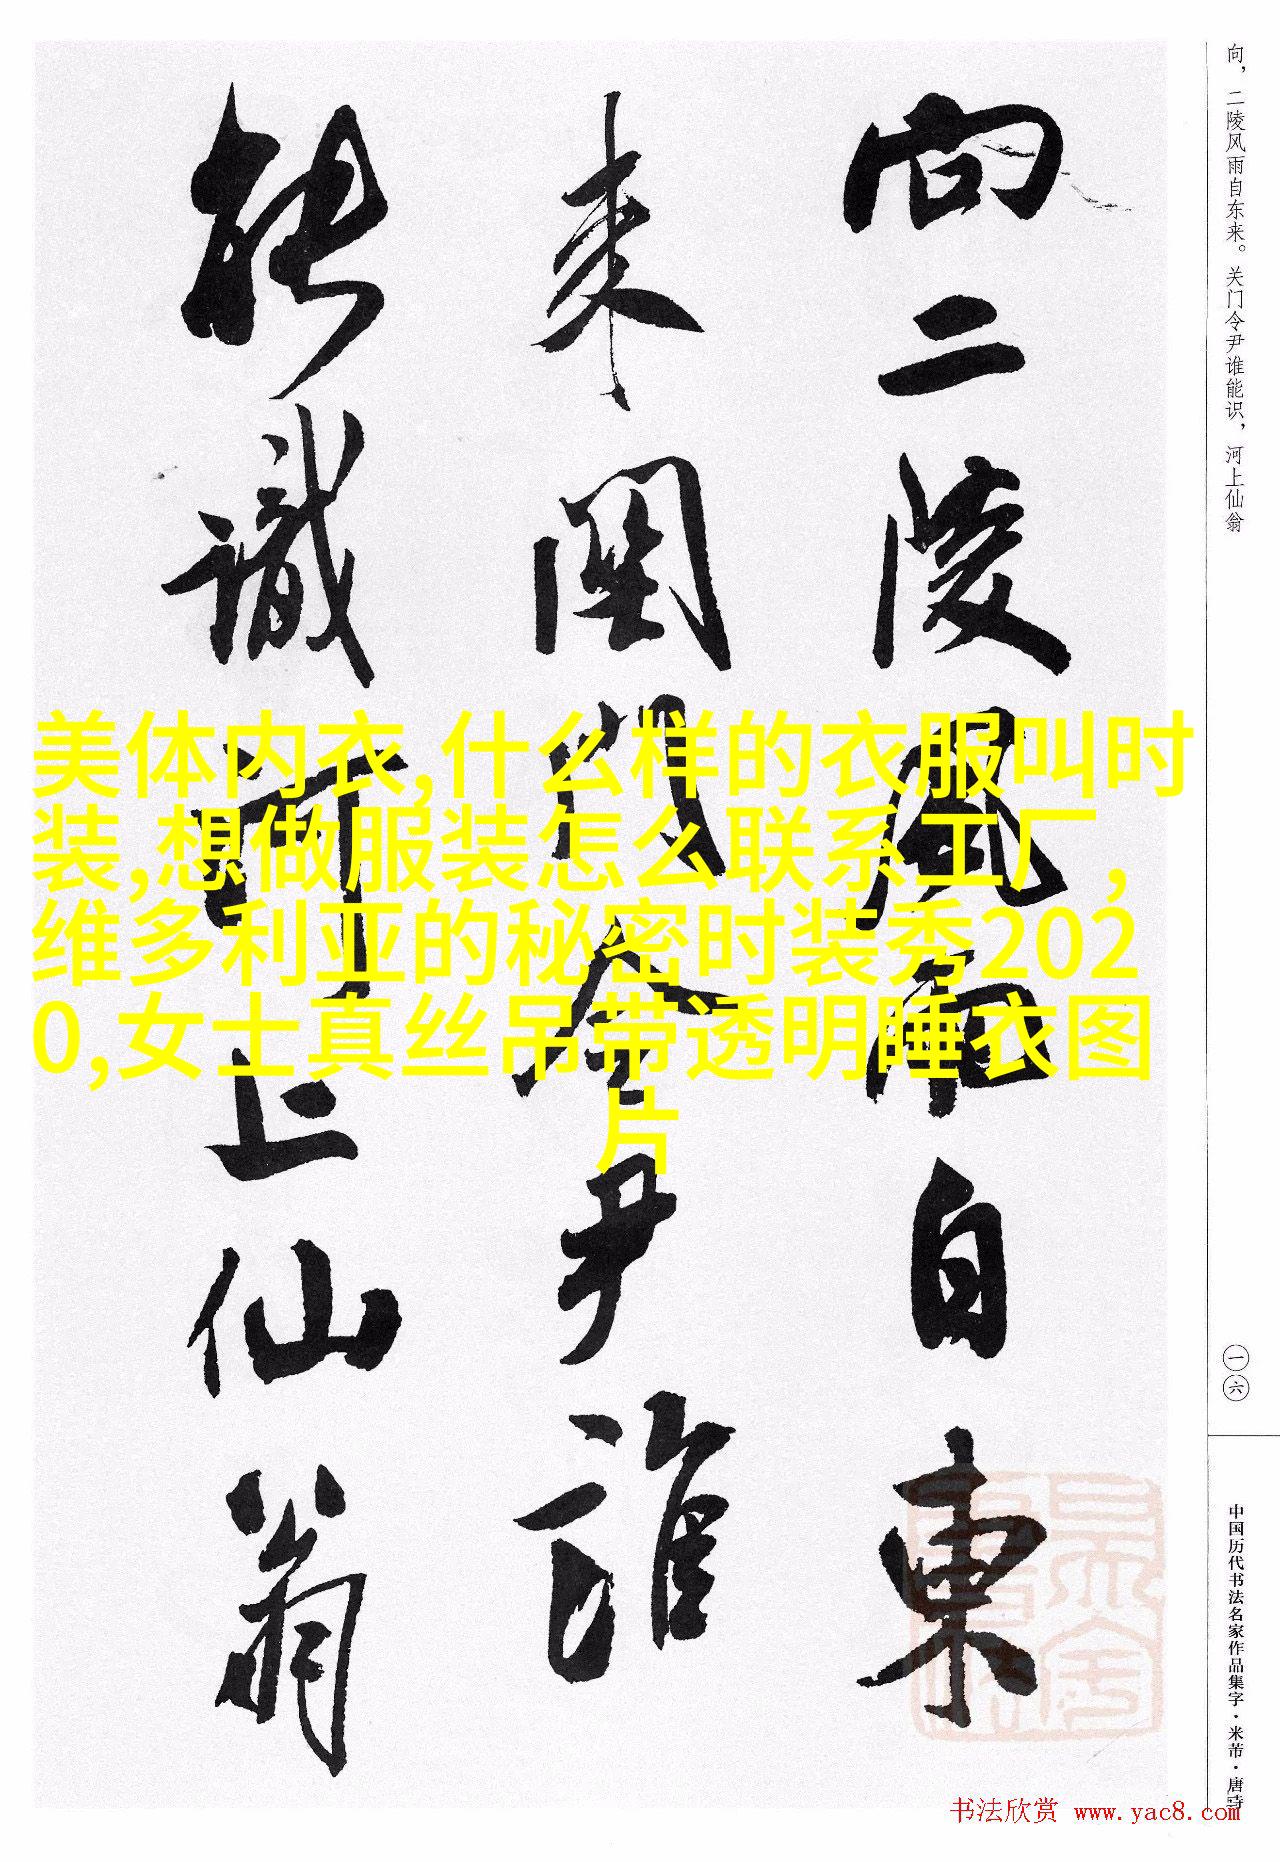 向，二陵风雨自东来。关门令尹谁能识，河上仙翁
向二陵風雨自東
来關門令尹誰
能識河上仙翁
美体内衣,什么样的衣服叫时
装,想做服装怎么联系工厂,
维多利亚的秘密时装秀202
0,女士真丝吊带透明睡衣图
片
一六
中国历代书法名家作品集字·米芾·唐诗
书法欣赏 www.yac8.com